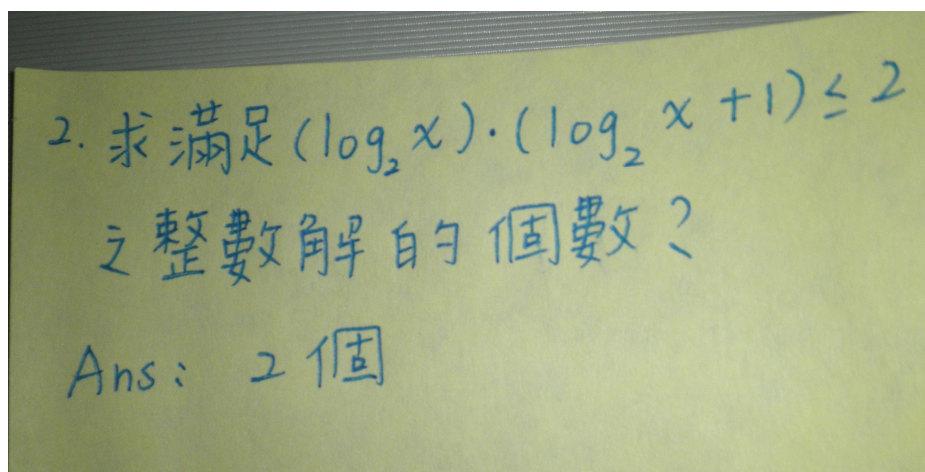 2. 求滿足(log₂x)·(log₂ x+1)≤2
之整數解的個數?
Ans: 2個